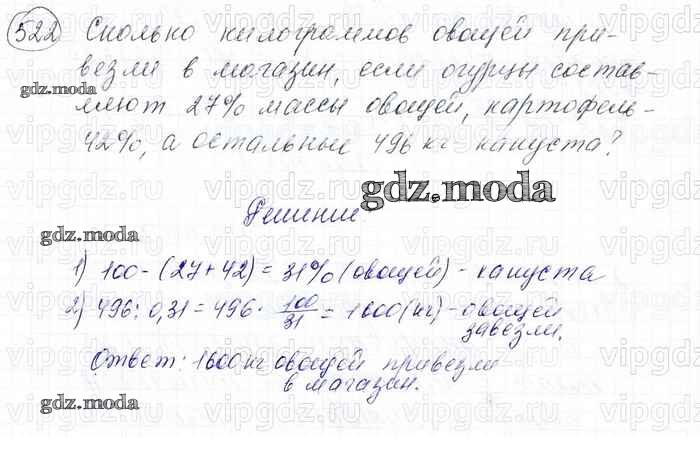 522 Сколько килограммов овощей при-
везли в магазин, если огурцы состав-
ляют 27% массы овощей, картофель-
42%, а остальные 496 кг капуста?
gdz.moda
gdz.moda
Решение
gdz.moda
1) 100-(27+42)=31% (овощей) - капуста
2) 496:0,31=496·100/31=1600(кг)-овощей
завезли.
Ответ: 1600 кг овощей привезли
в магазин.
gdz.moda